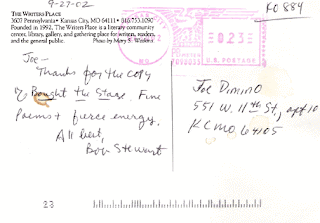 9-27-02
KO 884
THE WRITERS PLACE
3607 Pennsylvania • Kansas City, MO 64111 • 816.753.1090
Founded in 1992, The Writers Place is a literary community
center, library, gallery, and gathering place for writers, readers
and the general public. Photo by Mary S. Watkins
0 2 3
U.S. POSTAGE
Joe –
Thanks for the copy
of Bought the Stage. Fine
poems + fierce energy.
All best,
Bob Stewart
Joe Dimino
551 W. 11th St., apt 10
KCMO 64105
23